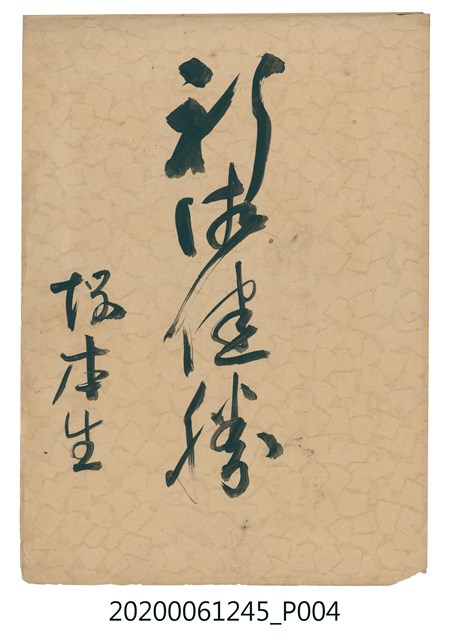 祈御健勝
塚本生
20200061245_P004